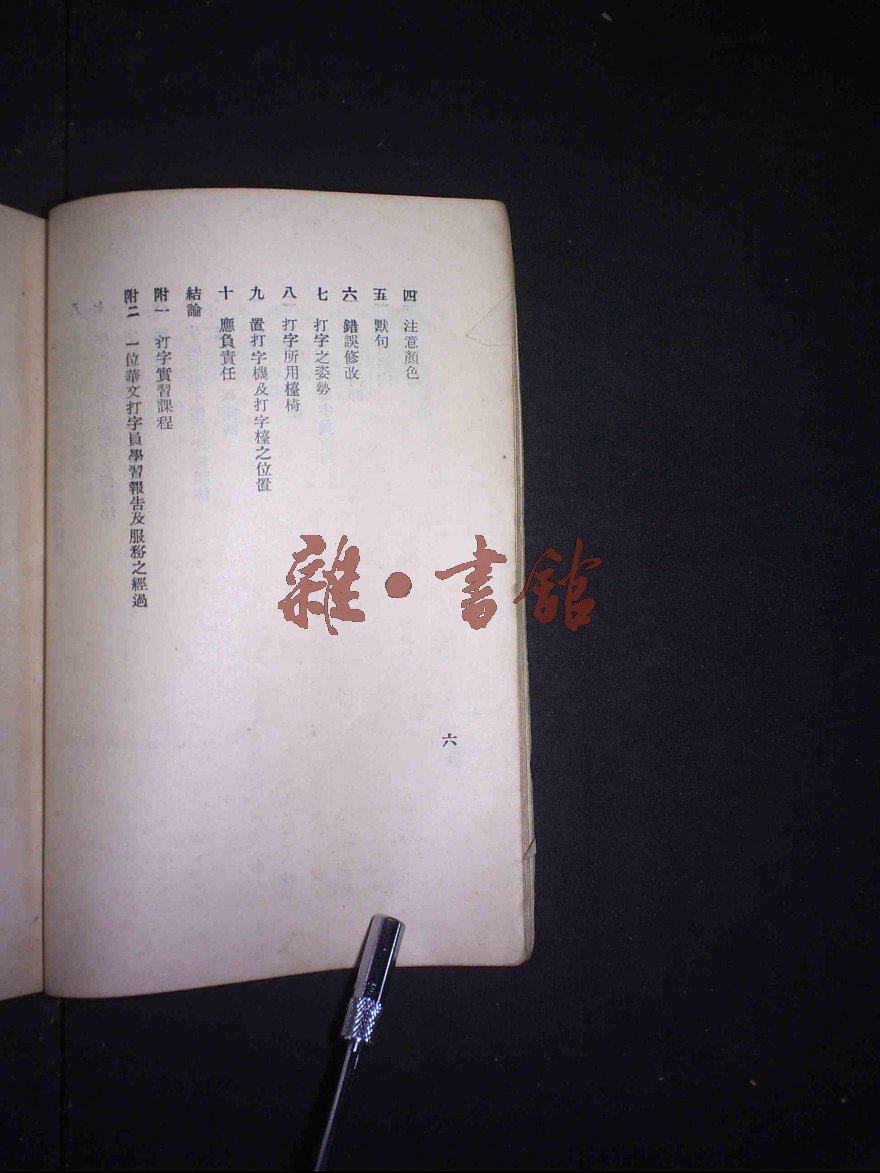 四　注意顏色
五　默句
六　錯誤修改
七　打字之姿勢
八　打字所用檯椅
九　置打字機及打字檯之位置
十　應負責任
結論
附一　打字實習課程
附二　一位華文打字員學習報告及服務之經過
六
雜·書館